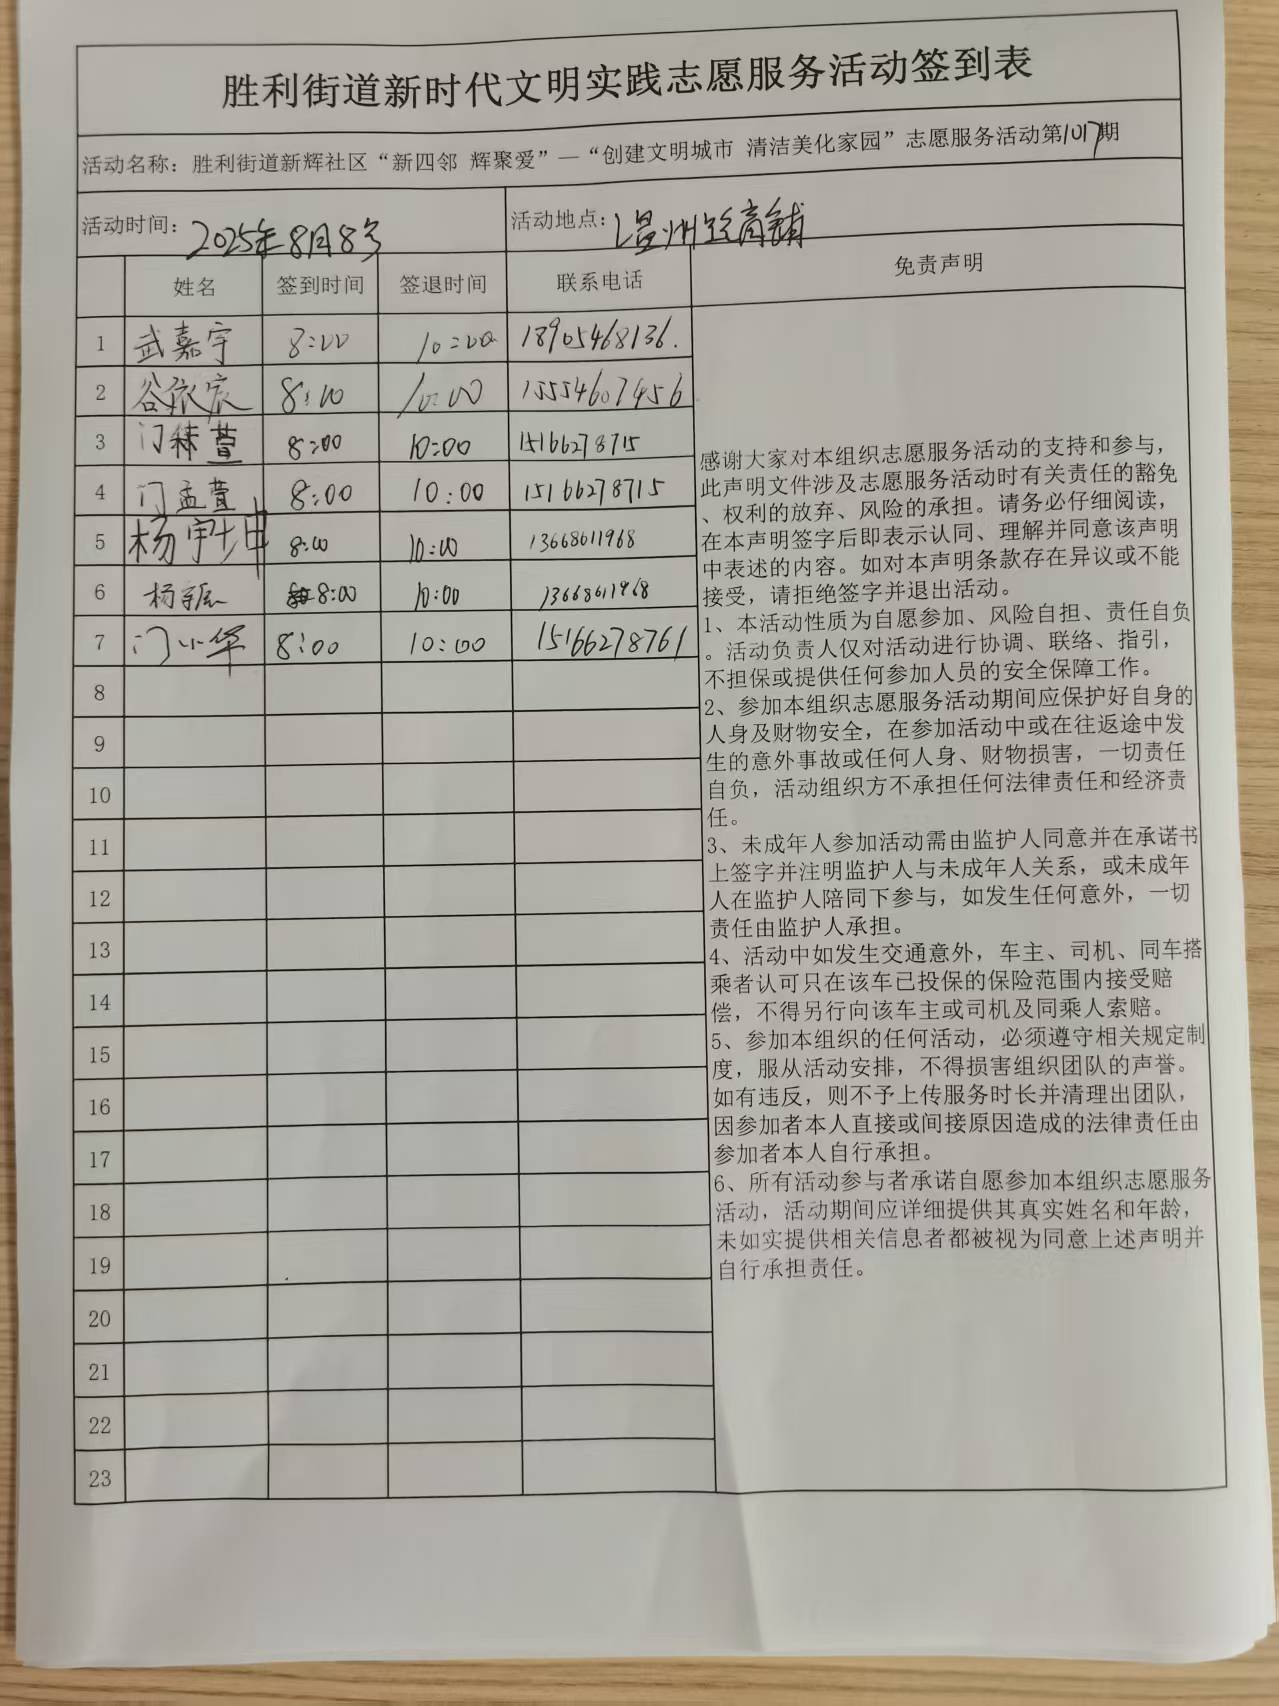 胜利街道新时代文明实践志愿服务活动签到表
活动名称：胜利街道新辉社区“新四邻 辉聚爱”—“创建文明城市 清洁美化家园”志愿服务活动第1017期
活动时间：2025年8月8号 活动地点：温州 商铺
姓名 签到时间 签退时间 联系电话 免责声明
1 武嘉宇 8:00 10:00 18905468136.
2 谷依宸 8:00 10:00 15554607456
3 门 萱 8:00 10:00 15166278715
4 门孟萱 8:00 10:00 15166278715
5 杨宇坤 8:00 10:00 13668611968
6 杨 8:00 10:00 13668611968
7 门小华 8:00 10:00 15166278761
8
9
10
11
12
13
14
15
16
17
18
19
20
21
22
23
感谢大家对本组织志愿服务活动的支持和参与，
此声明文件涉及志愿服务活动时有关责任的豁免
、权利的放弃、风险的承担。请务必仔细阅读，
在本声明签字后即表示认同、理解并同意该声明
中表述的内容。如对本声明条款存在异议或不能
接受，请拒绝签字并退出活动。
1、本活动性质为自愿参加、风险自担、责任自负
。活动负责人仅对活动进行协调、联络、指引，
不担保或提供任何参加人员的安全保障工作。
2、参加本组织志愿服务活动期间应保护好自身的
人身及财物安全，在参加活动中或在往返途中发
生的意外事故或任何人身、财物损害，一切责任
自负，活动组织方不承担任何法律责任和经济责
任。
3、未成年人参加活动需由监护人同意并在承诺书
上签字并注明监护人与未成年人关系，或未成年
人在监护人陪同下参与，如发生任何意外，一切
责任由监护人承担。
4、活动中如发生交通意外，车主、司机、同车搭
乘者认可只在该车已投保的保险范围内接受赔
偿，不得另行向该车主或司机及同乘人索赔。
5、参加本组织的任何活动，必须遵守相关规定制
度，服从活动安排，不得损害组织团队的声誉。
如有违反，则不予上传服务时长并清理出团队，
因参加者本人直接或间接原因造成的法律责任由
参加者本人自行承担。
6、所有活动参与者承诺自愿参加本组织志愿服务
活动，活动期间应详细提供其真实姓名和年龄，
未如实提供相关信息者都被视为同意上述声明并
自行承担责任。